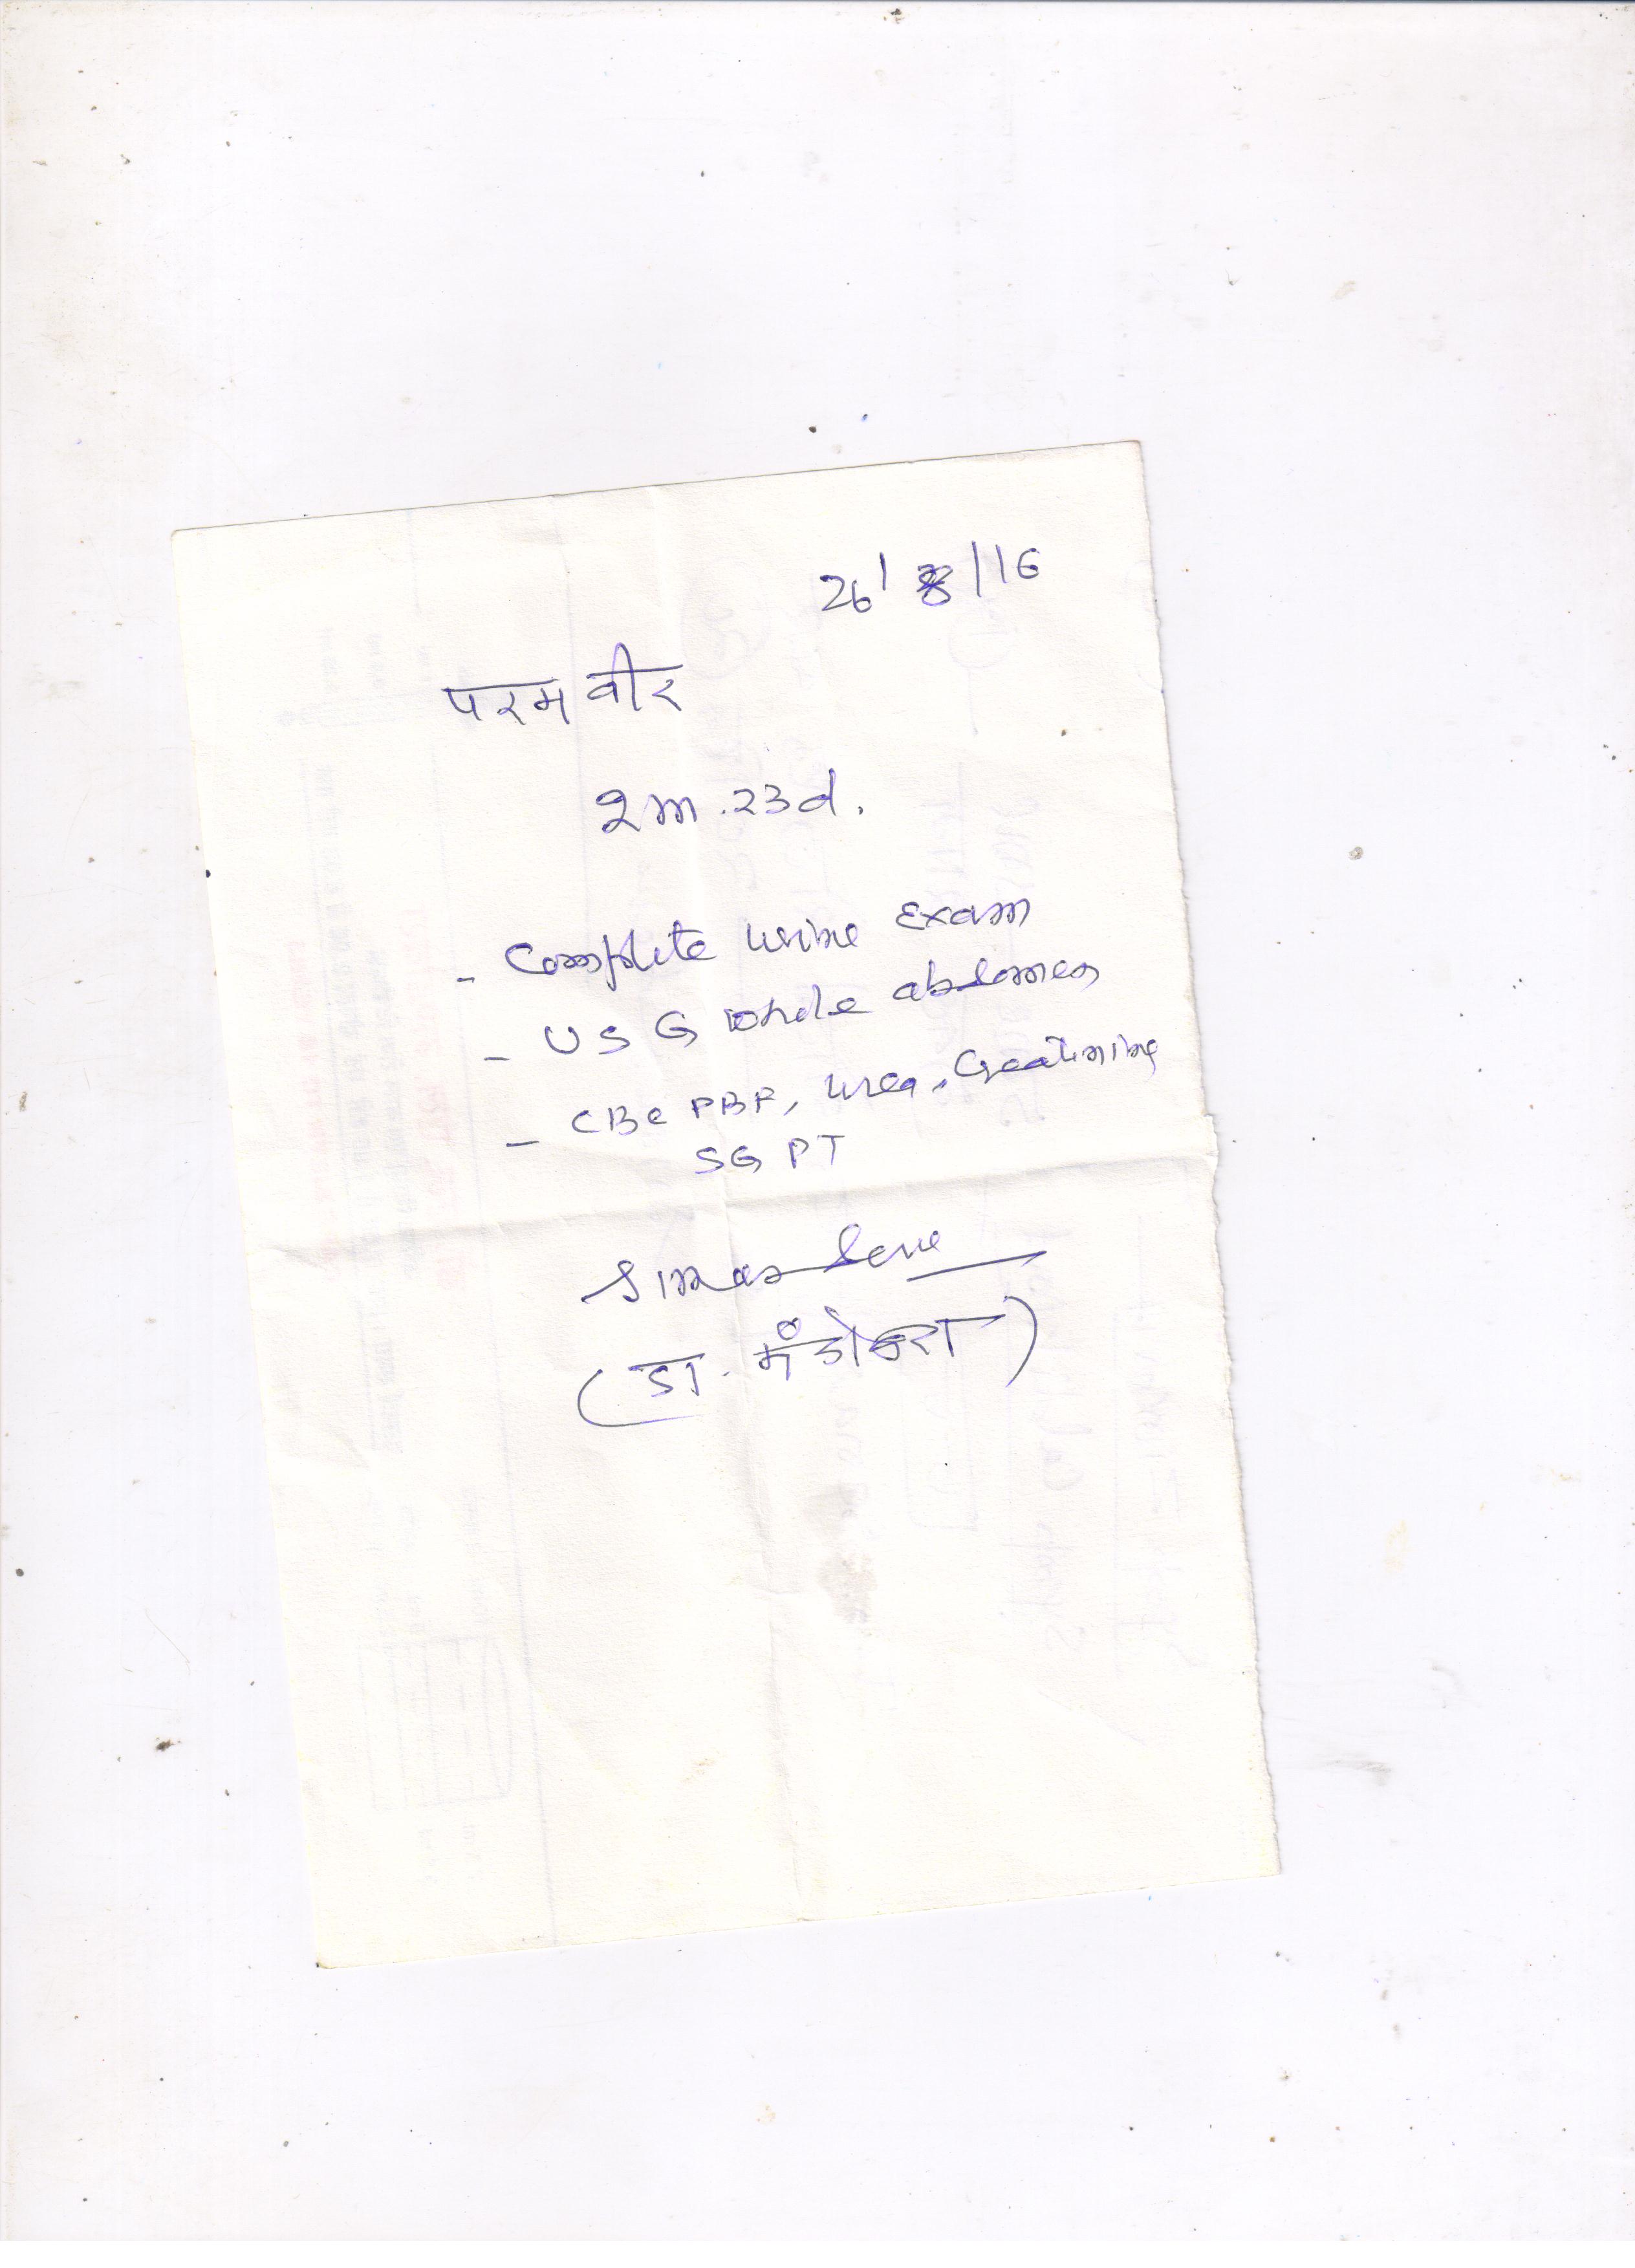 26/8/16
परमवीर
2m.23d.
- Complete urine Exam
- USG whole abdomen
- CBC PBF, urea, Creatinine
SGPT
(डा. मंडोवरा)